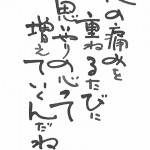 心の痛みを
重ねるたびに
思いやりの心って
増えていくんだね